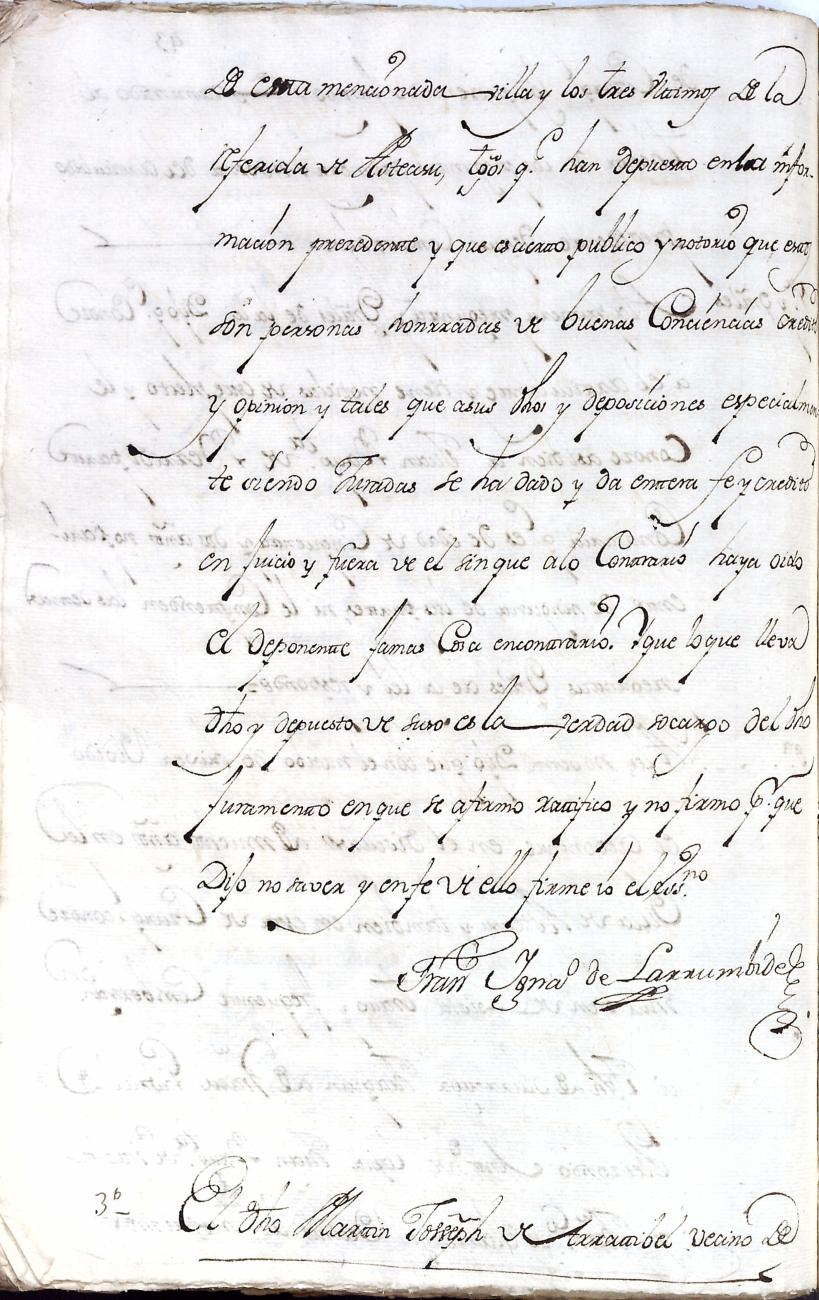 de esta mencionada villa y los tres ultimos de la
referida de Asteasu, tgos q.e han depuesto en la infor-
macion precedente y que es cierto publico y notorio que estos
son personas honrradas de buenas Conciencias credito
y opinion y tales que a sus dhos y deposiciones especialmen-
te siendo Juradas se ha dado y da entera fe y credito
en juicio y fuera de el sin que a lo Contrario haya oido
el deponente jamas Cosa en contrario. Y que lo que lleva
dho y depuesto de suso es la verdad so cargo del dho
juramento en que se afirmo ratifico y no firmo p.r que
Dijo no saver y en fe de ello firme io el ess.no
Fran.co Ygna.o de Larrumbide
3.º El dho Martin Josseph de Arrattibel vecino de